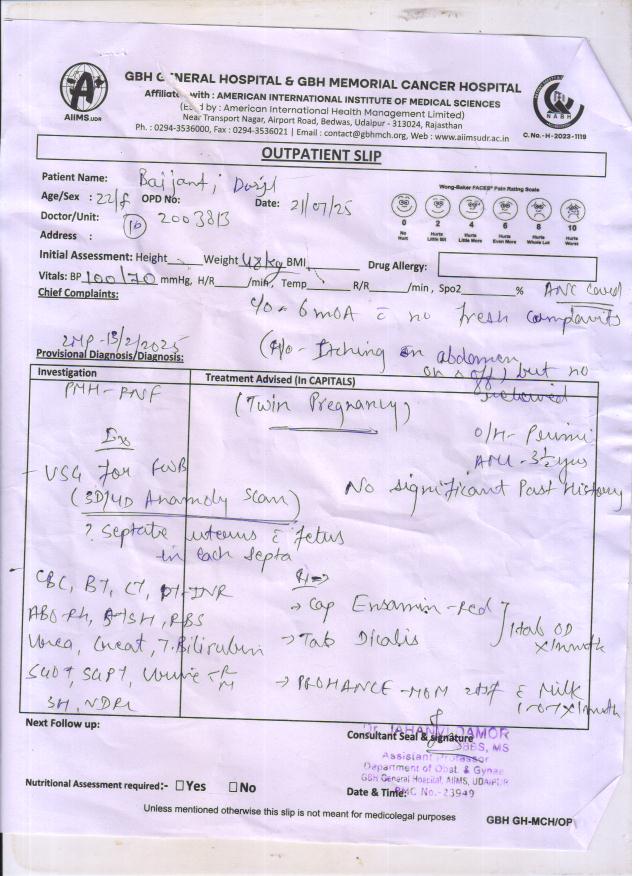 GBH GENERAL HOSPITAL & GBH MEMORIAL CANCER HOSPITAL
Affiliate with : AMERICAN INTERNATIONAL INSTITUTE OF MEDICAL SCIENCES
by : American International Health Management Limited)
Near Transport Nagar, Airport Road, Bedwas, Udaipur - 313024, Rajasthan
Ph. : 0294-3536000, Fax : 0294-3536021 | Email : contact@gbhmch.org, Web : www.aiimsudr.ac.in
AIIMS.UDR
NABH
C.No.-H-2023-1119
OUTPATIENT SLIP
Patient Name: Baijanti
Age/Sex : 22/f OPD No: Date: 21/07/25
Doctor/Unit: 2003813
Address :
Wong-Baker FACES® Pain Rating Scale
0 2 4 6 8 10
No Hurt Hurts Little Bit Hurts Little More Hurts Even More Hurts Whole Lot Hurts Worst
Initial Assessment: Height Weight 48kg BMI Drug Allergy:
Vitals: BP 100/70 mmHg, H/R /min, Temp R/R /min, Spo2 %
ANC
Chief Complaints:
c/o - 6 mOA c no fresh complaints
LMP - 13/2/2025
Itching on abdomen
on & off, but no
Provisional Diagnosis/Diagnosis:
Investigation
Treatment Advised (In CAPITALS)
(Twin Pregnancy)
O/H - Primi
3½ yrs
No significant Past History
USG for FWB
(3D/4D Anamoly Scan)
? Septate uterus c fetus
in each septa
CBC, BT, CT, PT-INR
ABO-Rh, RBS
Urea, Creat, T. Bilirubin
SGOT, SGPT, Urine R/M
Cap Ensamin-Red
Tab Dicalis
1 tab OD
x 1 month
PROMANCE-MOM 2tsf c Milk
x 1 month
Next Follow up:
Consultant Seal & signature
DAMOR
MBBS, MS
Assistant Professor
Department of Obst. & Gynae
GBH General Hospital, AIIMS, UDAIPUR
RMC No.-23949
Nutritional Assessment required:- ☐Yes ☐No
Date & Time:
Unless mentioned otherwise this slip is not meant for medicolegal purposes
GBH GH-MCH/OP